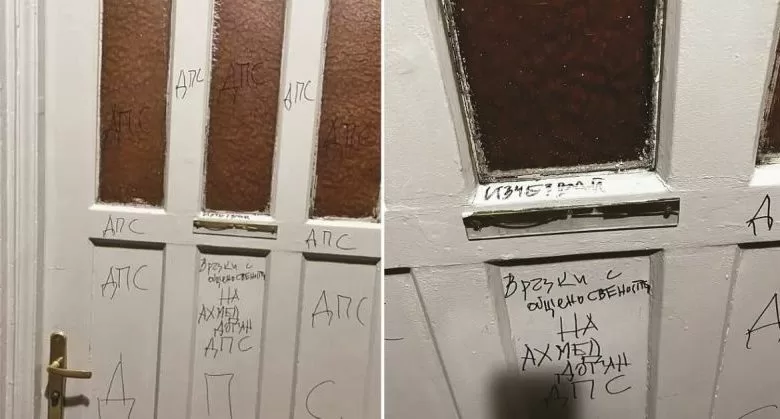 ДПС
ДПС
ДПС
ДПС
ДПС
ИЗЧЕЗВАЙ
ДПС
ДПС
ДПС
Връзки с
НА
АХМЕД
ДОГАН
ДПС
ДПС
Д П С
ИЗЧЕЗВАЙ
Д
Връзки с
НА
АХМЕД
ДОГАН
ДПС
Д